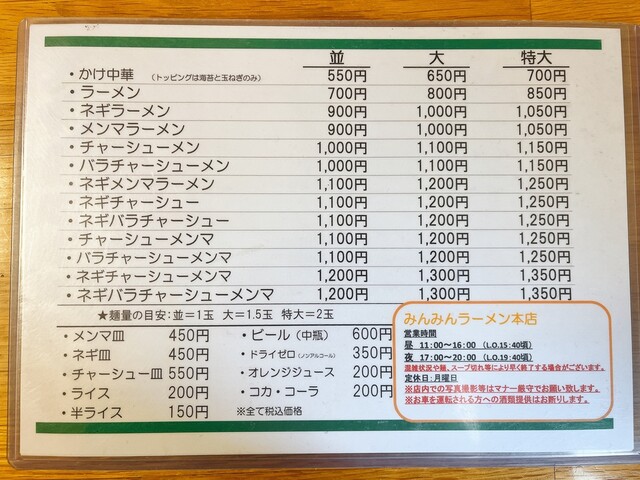 並 大 特大
・かけ中華 （トッピングは海苔と玉ねぎのみ） 550円 650円 700円
・ラーメン 700円 800円 850円
・ネギラーメン 900円 1,000円 1,050円
・メンマラーメン 900円 1,000円 1,050円
・チャーシューメン 1,000円 1,100円 1,150円
・バラチャーシューメン 1,000円 1,100円 1,150円
・ネギメンマラーメン 1,100円 1,200円 1,250円
・ネギチャーシュー 1,100円 1,200円 1,250円
・ネギバラチャーシュー 1,100円 1,200円 1,250円
・チャーシューメンマ 1,100円 1,200円 1,250円
・バラチャーシューメンマ 1,100円 1,200円 1,250円
・ネギチャーシューメンマ 1,200円 1,300円 1,350円
・ネギバラチャーシューメンマ 1,200円 1,300円 1,350円
★麺量の目安：並＝1玉 大＝1.5玉 特大＝2玉
・メンマ皿 450円
・ネギ皿 450円
・チャーシュー皿 550円
・ライス 200円
・半ライス 150円
・ビール（中瓶） 600円
・ドライゼロ（ノンアルコール） 350円
・オレンジジュース 200円
・コカ・コーラ 200円
※全て税込価格
みんみんラーメン本店
営業時間
昼 11:00～16:00 （L.O.15:40頃）
夜 17:00～20:00 （L.O.19:40頃）
混雑状況や麺、スープ切れ等により早く終了する場合がございます。
定休日：月曜日
※店内での写真撮影等はマナー厳守でお願い致します。
※お車を運転される方への酒類提供はお断りします。